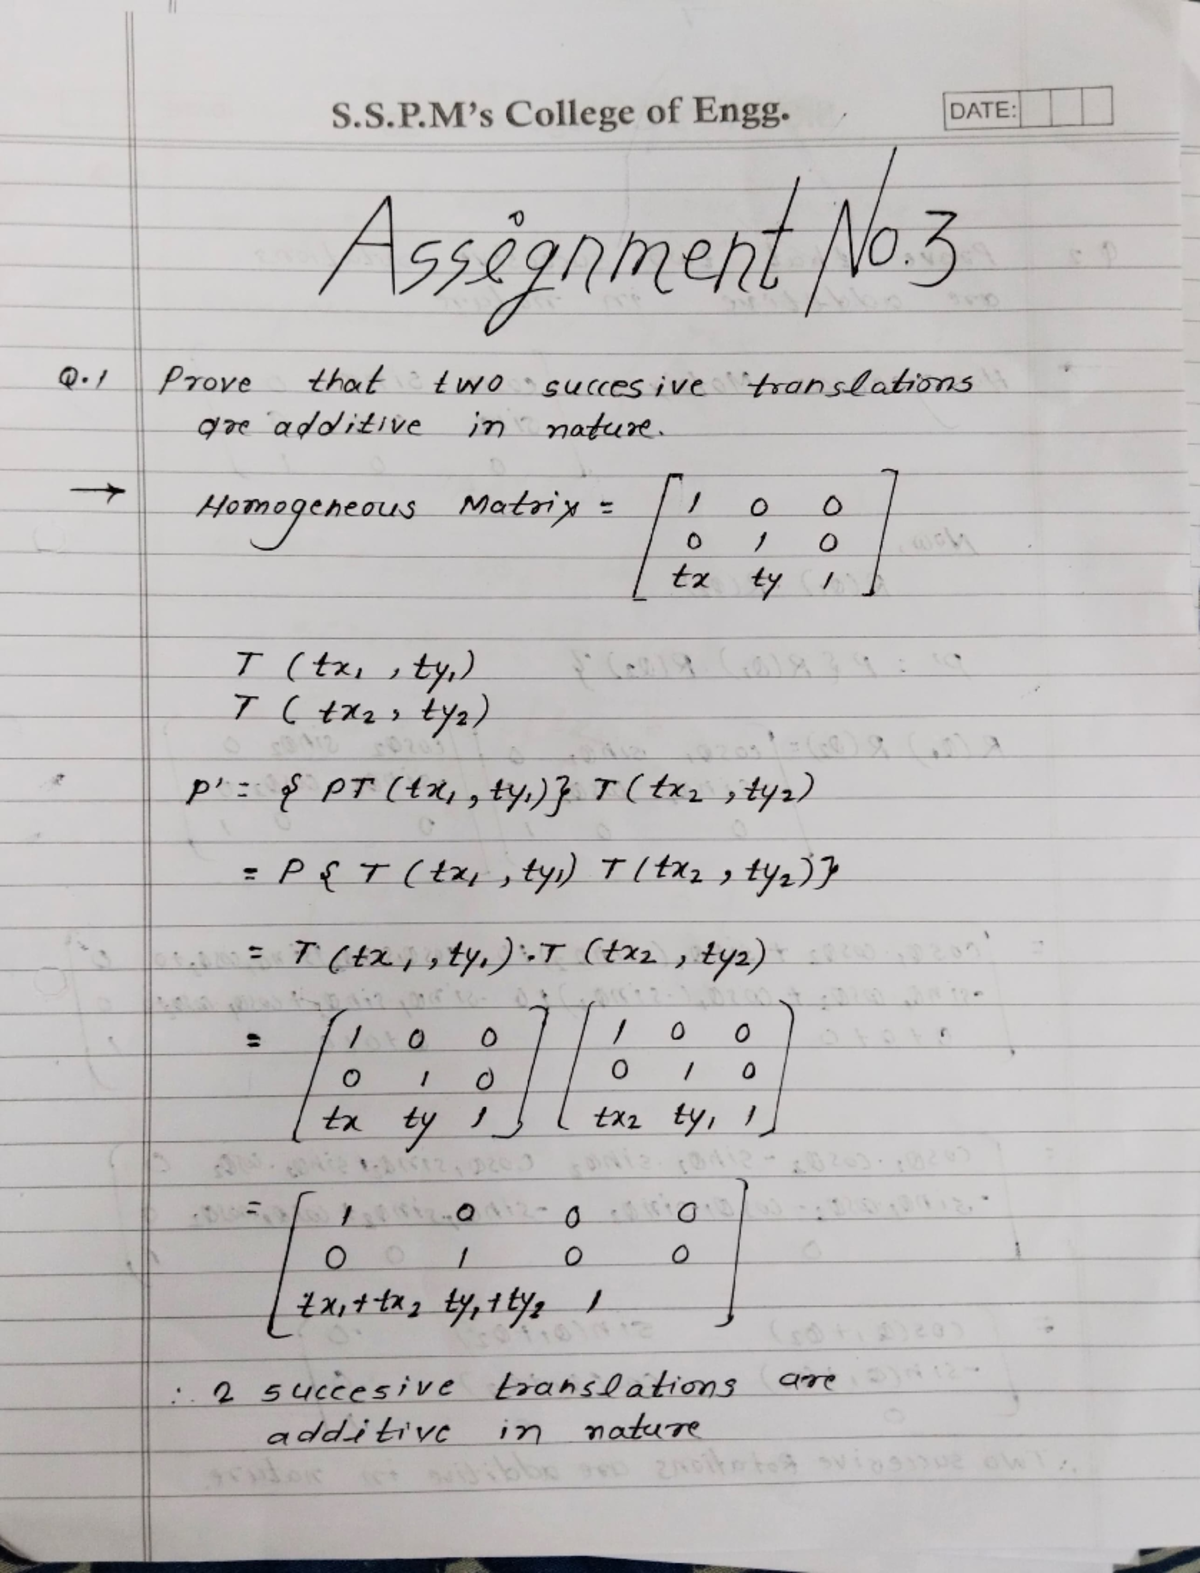 S.S.P.M's College of Engg.
DATE:
Assignment No.3
Q.1 Prove that two succesive translations
are additive in nature.
→ Homogeneous Matrix = [ 1 0 0
0 1 0
tx ty 1 ]
T (tx₁ , ty₁)
T ( tx₂ , ty₂)
P' = { PT (tx₁ , ty₁)} T (tx₂ , ty₂)
= P { T (tx₁ , ty₁) T (tx₂ , ty₂)}
= T (tx₁ , ty₁) . T (tx₂ , ty₂)
= [ 1 0 0 ] [ 1 0 0 ]
0 1 0 0 1 0
tx ty 1 tx₂ ty₁ 1
= [ 1 0 0 0 ]
0 1 0 0
tx₁+tx₂ ty₁+ty₂ 1
∴ 2 succesive translations are
additive in nature